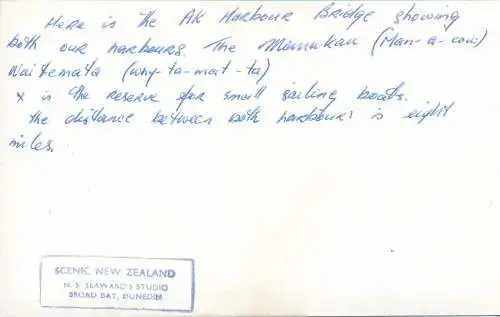 Here is the AK Harbour Bridge showing
both our harbours. The Manukau (Man-a-cow)
Waitemata (why-ta-mat-ta)
x is the reserve for small sailing boats.
the distance between both harbours is eight
miles.
SCENIC NEW ZEALAND
N. S. SEAWARD'S STUDIO
BROAD BAY, DUNEDIN